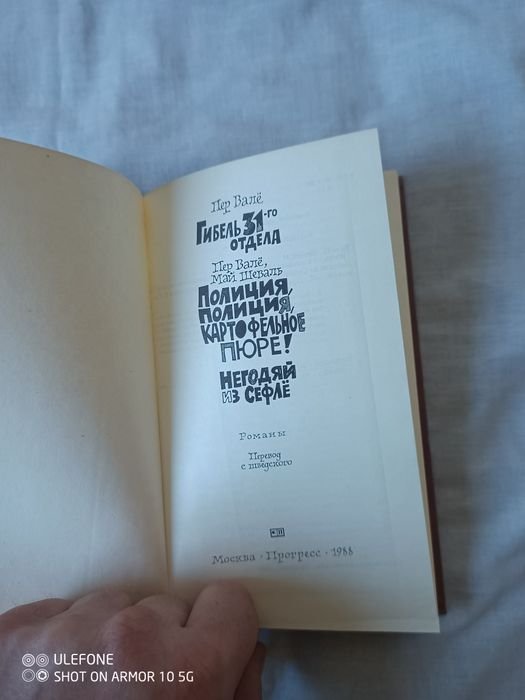 Пер Валё
Гибель 31-го
отдела
Пер Валё,
Май Шеваль
Полиция,
полиция,
картофельное
пюре!
Негодяй
из Сефлё
Романы
Перевод
с шведского
Москва · Прогресс · 1988
ULEFONE
SHOT ON ARMOR 10 5G